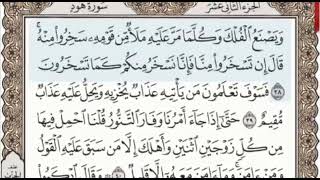 الجزء الثاني عشر
سورة هود
وَيَصْنَعُ الْفُلْكَ وَكُلَّمَا مَرَّ عَلَيْهِ مَلَأٌ مِّن قَوْمِهِ سَخِرُوا مِنْهُ
قَالَ إِن تَسْخَرُوا مِنَّا فَإِنَّا نَسْخَرُ مِنكُمْ كَمَا تَسْخَرُونَ
٣٨ فَسَوْفَ تَعْلَمُونَ مَن يَأْتِيهِ عَذَابٌ يُخْزِيهِ وَيَحِلُّ عَلَيْهِ عَذَابٌ
مُّقِيمٌ ٣٩ حَتَّىٰ إِذَا جَاءَ أَمْرُنَا وَفَارَ التَّنُّورُ قُلْنَا احْمِلْ فِيهَا
مِن كُلٍّ زَوْجَيْنِ اثْنَيْنِ وَأَهْلَكَ إِلَّا مَن سَبَقَ عَلَيْهِ الْقَوْلُ
وَمَنْ ءَامَنَ وَمَا ءَامَنَ مَعَهُ إِلَّا قَلِيلٌ ٤٠ وَقَالَ ارْكَبُوا